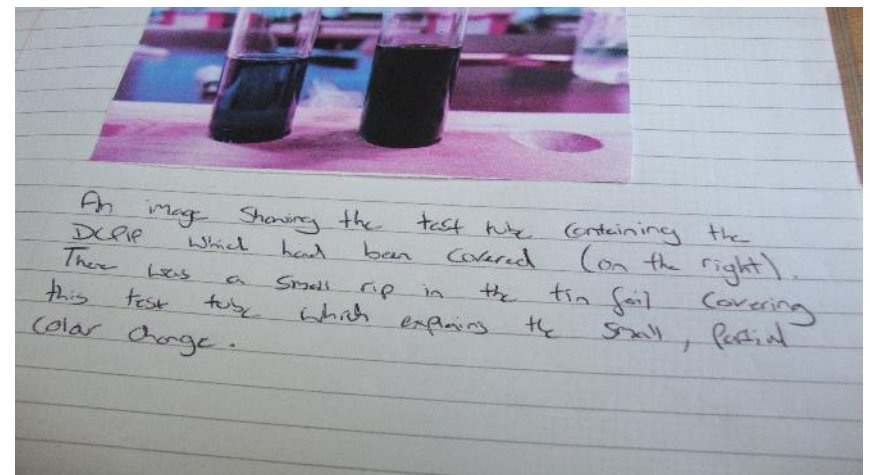 An image showing the test tube containing the
DCPIP which had been covered (on the right).
There was a small rip in the tin foil covering
this test tube which explains the small, partial
colar change.